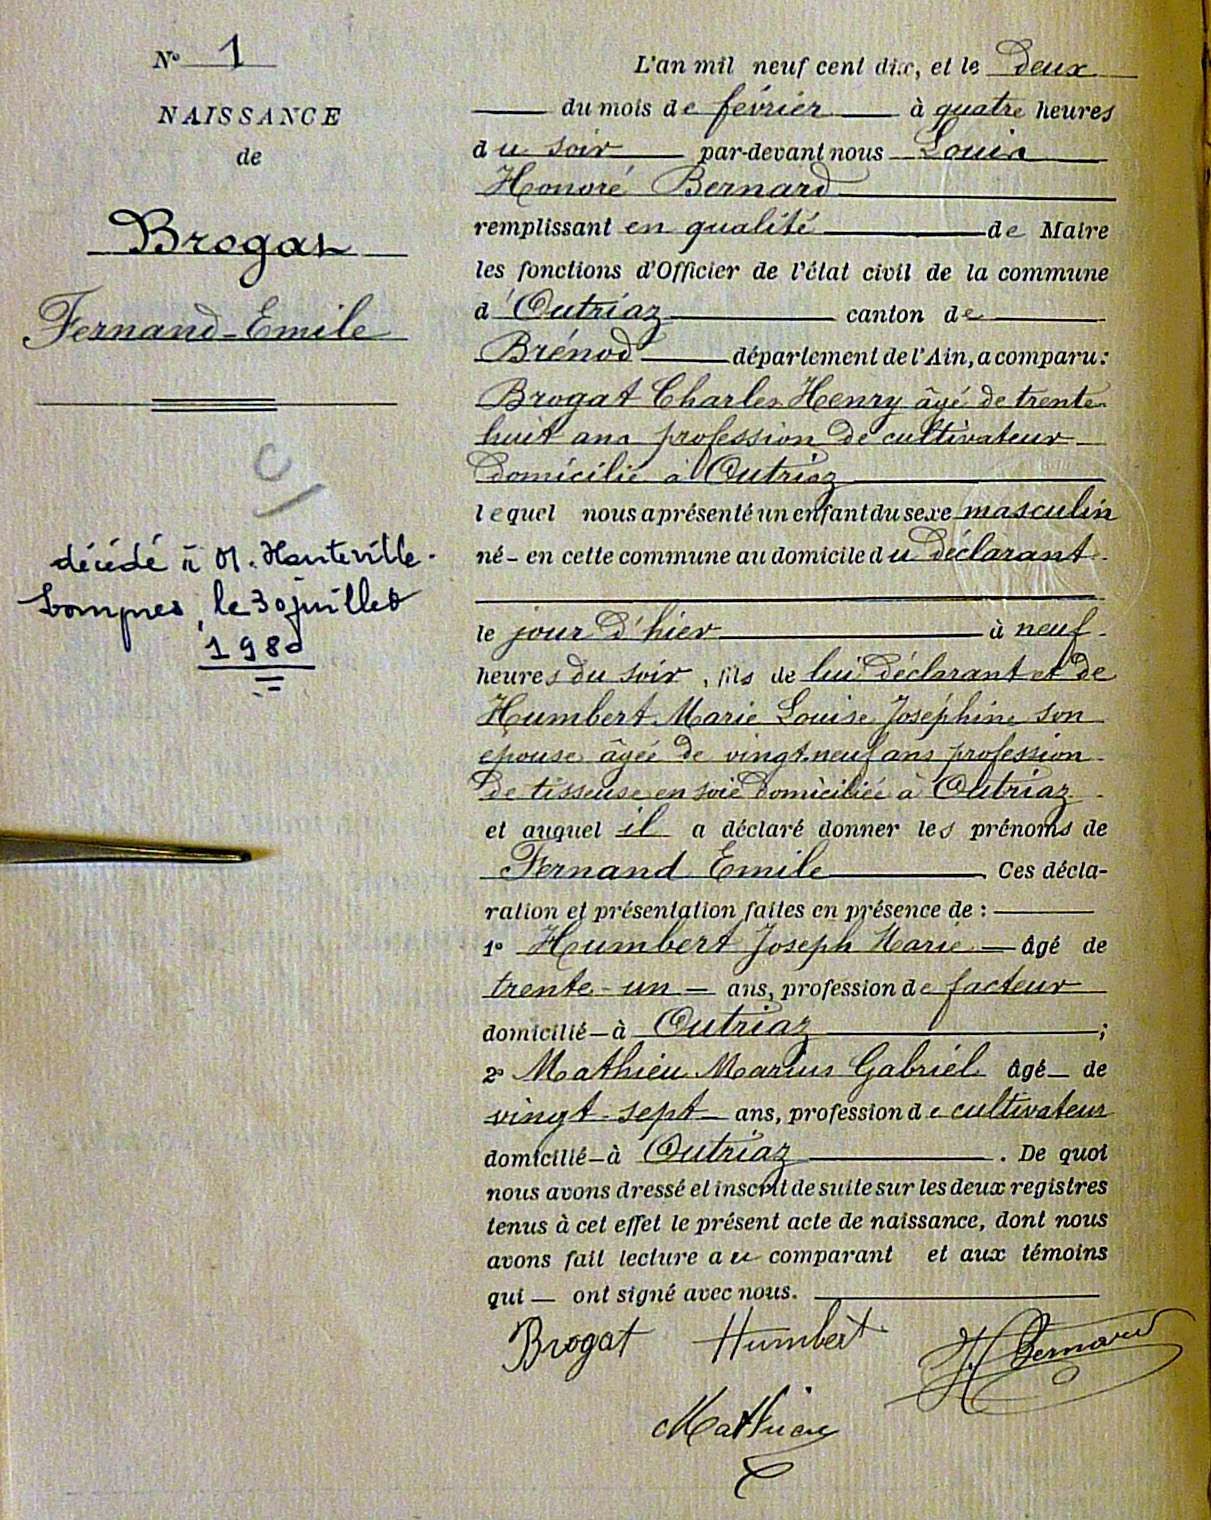 N° 1
NAISSANCE
de
Brogat
Fernand-Emile
décédé à 01. Hauteville-
Lompnes, le 30 juillet
1980
L'an mil neuf cent dix, et le deux
du mois de février à quatre heures
du soir par-devant nous Louis
Honoré Bernard
remplissant en qualité de Maire
les fonctions d'Officier de l'état civil de la commune
d'Outriaz canton de
Brénod département de l'Ain, a comparu:
Brogat Charles Henry âgé de trente
huit ans profession de cultivateur
domicilié à Outriaz
lequel nous a présenté un enfant du sexe masculin
né - en cette commune au domicile du déclarant
le jour d'hier à neuf
heures du soir, fils de lui déclarant et de
Humbert Marie Louise Joséphine son
épouse âgée de vingt-neuf ans profession
de tisseuse en soie domiciliée à Outriaz
et auquel il a déclaré donner les prénoms de
Fernand Emile Ces décla-
ration et présentation faites en présence de :
1° Humbert Joseph Marie âgé de
trente-un ans, profession de facteur
domicilié à Outriaz ;
2° Mathieu Marius Gabriel âgé de
vingt-sept ans, profession de cultivateur
domicilié à Outriaz . De quoi
nous avons dressé et inscrit de suite sur les deux registres
tenus à cet effet le présent acte de naissance, dont nous
avons fait lecture au comparant et aux témoins
qui ont signé avec nous.
Brogat Humbert H. Bernard
Mathieu